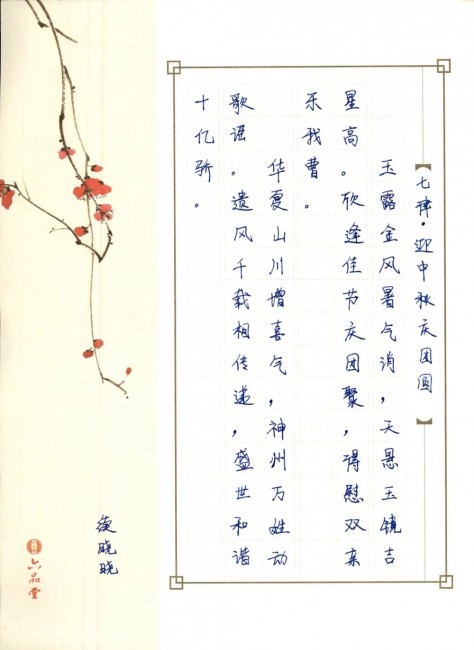 【七律·迎中秋庆团圆】
玉露金风暑气消,天悬玉镜吉
星高。欣逢佳节庆团聚,得慰双亲
乐我曹。
华夏山川增喜气,神州万姓动
歌谣。遗风千载相传递,盛世和谐
十亿骄。
晓晓
六品堂